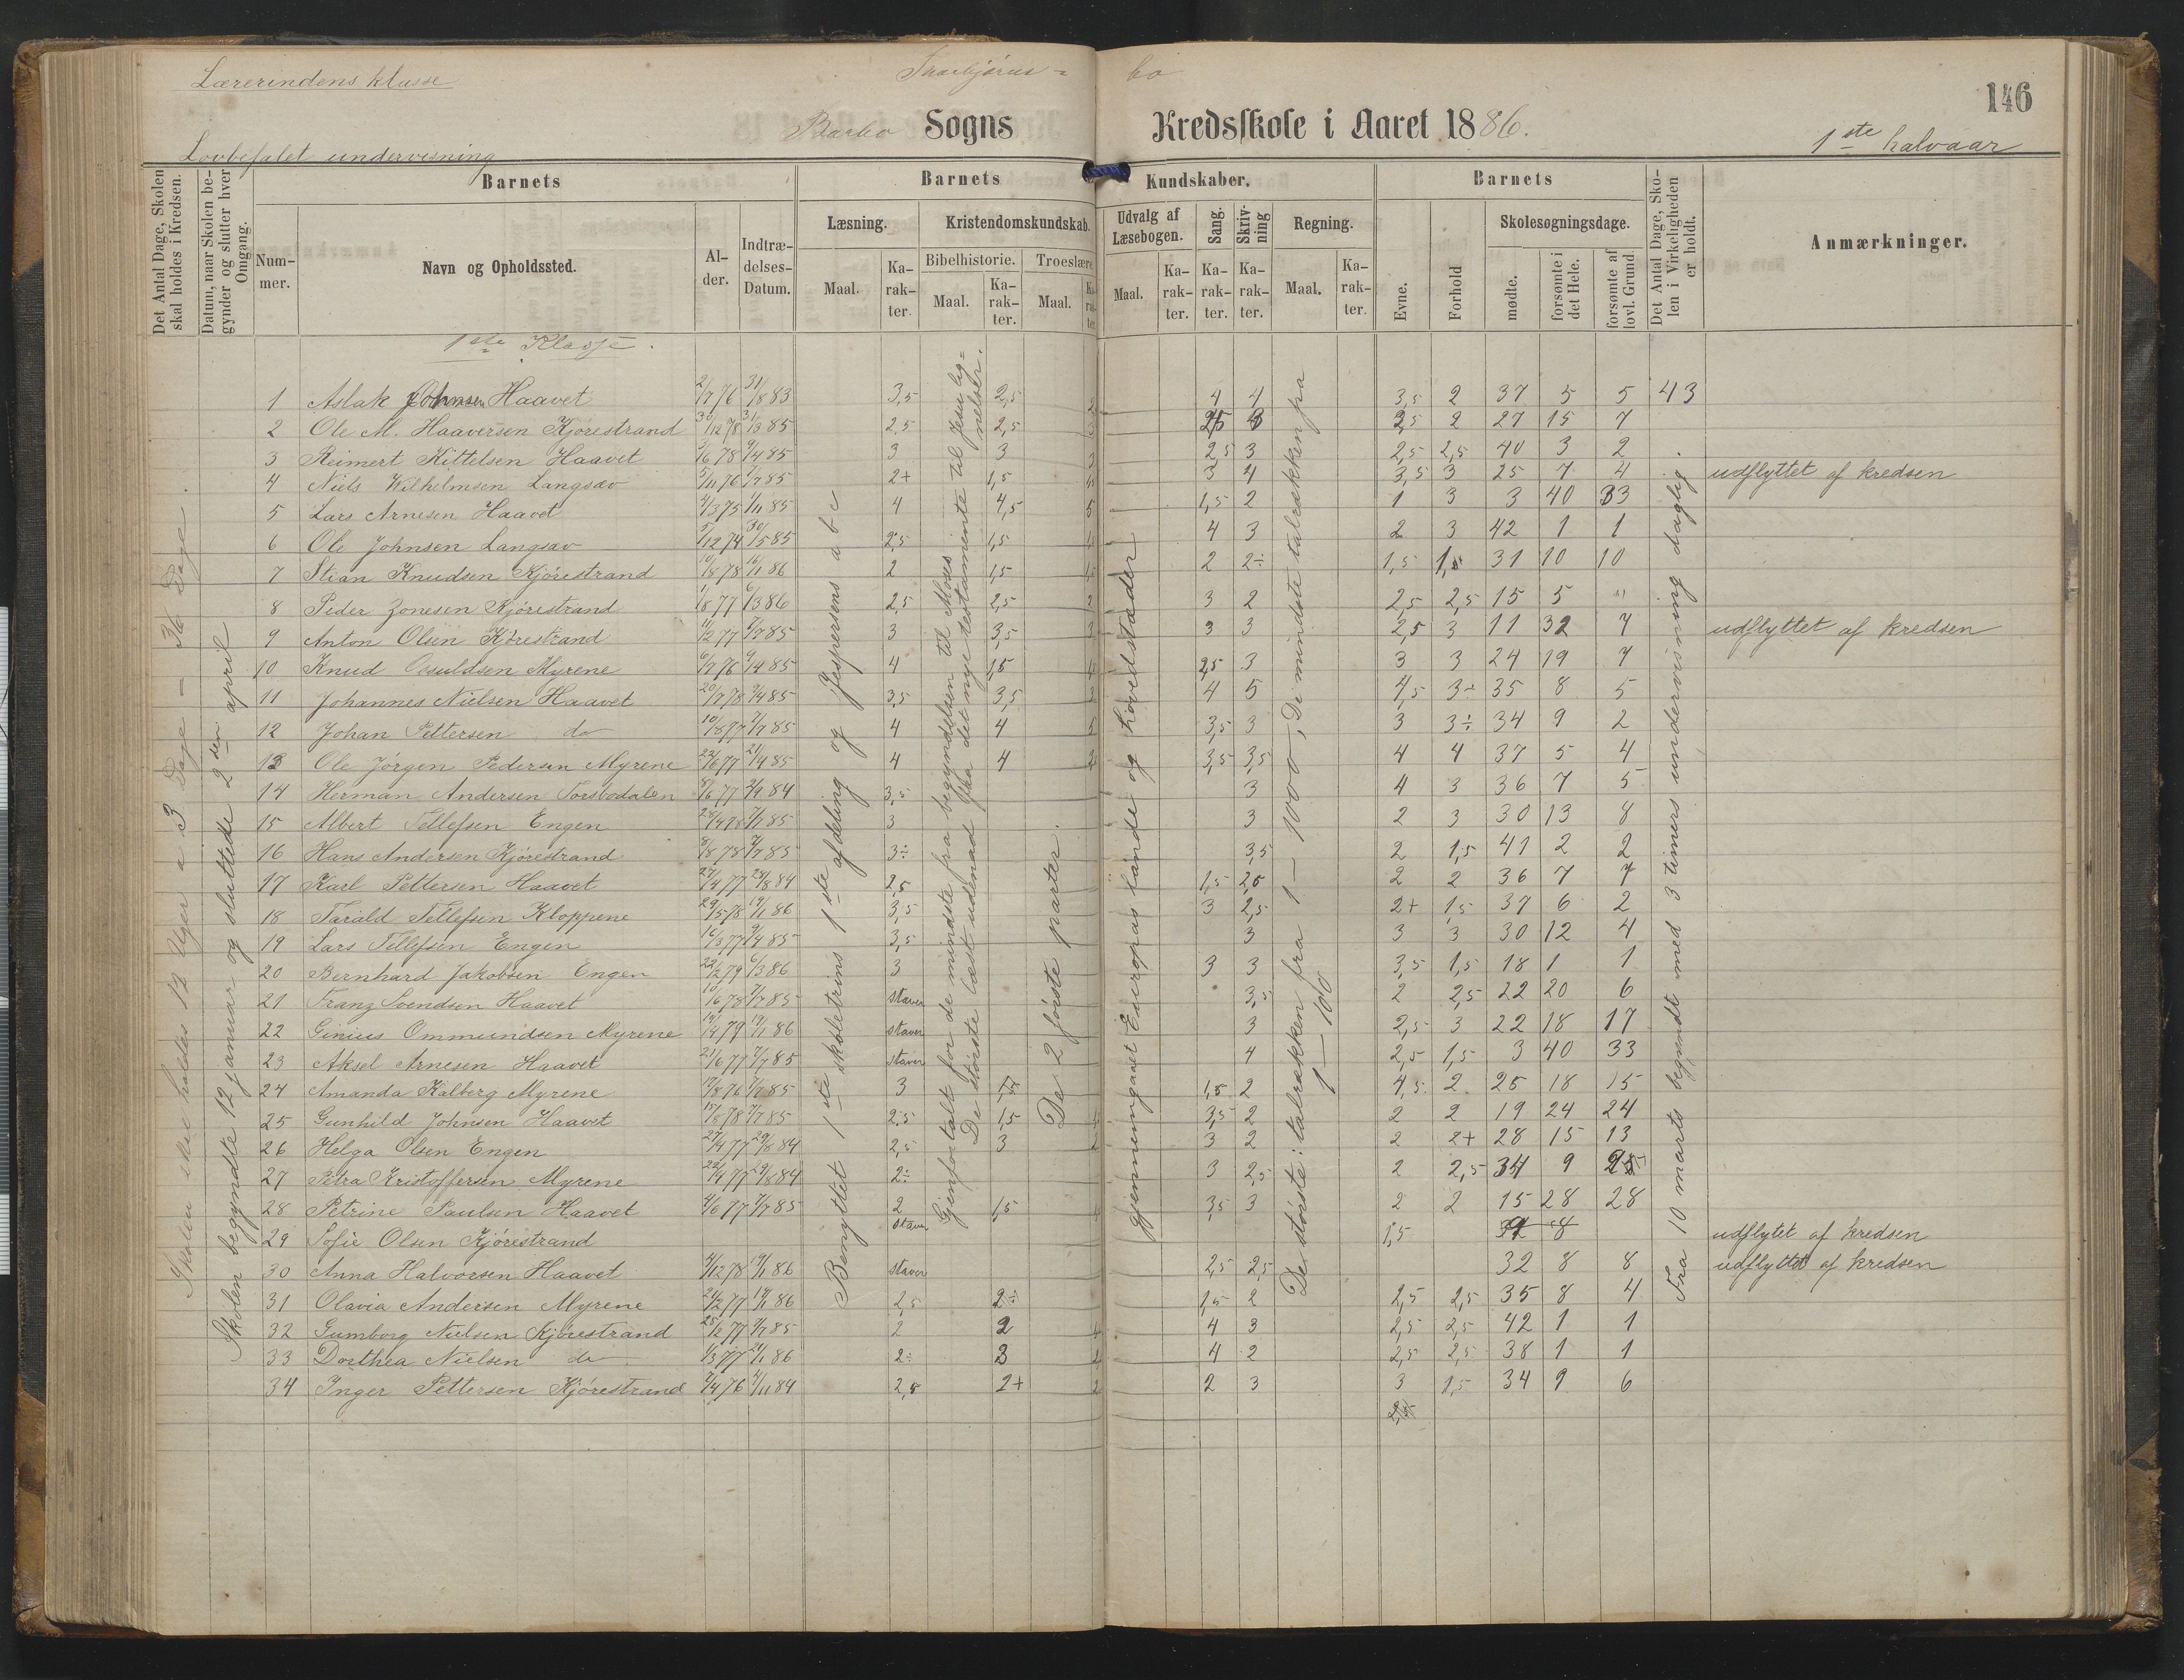 Lærerindens klasse
bo
146
Barbo Sogns Kredsskole i Aaret 1886.
1ste halvaar
Lovbefalet undervisning
Det Antal Dage, Skolen skal holdes i Kredsen.
Datum, naar Skolen begynder og slutter hver Omgang.
Barnets
Barnets Kundskaber.
Barnets
Det Antal Dage, Skolen i Virkeligheden er holdt.
Anmærkninger.
Nummer.
Navn og Opholdssted.
Alder.
Indtrædelses-Datum.
Læsning.
Kristendomskundskab.
Udvalg af Læsebogen.
Sang.
Skrivning
Regning.
Evne.
Forhold
Skolesøgningsdage.
Bibelhistorie.
Troeslære
Maal.
Karakter.
Maal.
Karakter.
Maal.
Karakter
Maal.
Karakter.
Karakter.
Karakter.
Maal.
Karakter.
mødte.
forsømte i det Hele.
forsømte af lovl. Grund.
1ste Klasse.
Skolen skal holdes 12 Uger a 3 Dage - 36 Dage.
Skolen begyndte 12 januar og sluttede 2den april
Benyttet 1ste skoletrins 1ste afdeling og Jespersens abc
Gjenfortalt for de mindste fra begyndelsen til Moses
De største læst udenad fra det nye testamente til Jesu lignelser.
De 2 første parter.
gjennemgaaet Europas lande og hovedstæder
De største: talrækken fra 1 - 1000, De mindste talrækken fra 1 - 100
Fra 10 marts begyndt med 3 timers undervisning daglig.
1 Aslak Johnsen Haavet 2/7 76 31/8 83 3,5 2,5 4 4 3,5 2 37 5 5 43
2 Ole M. Haaversen Kjørestrand 30/12 78 31/3 85 2,5 2,5 2 27 15 7
3 Reimert Kittelsen Haavet 9/4 85 3 3 2,5 3 2,5 2,5 40 3 2
4 Niels Wilhelmsen Langsæv 5/11 76 7/7 85 2+ 1,5 3 4 3,5 3 25 7 4 udflyttet af kredsen
5 Lars Arnesen Haavet 4/3 75 1/11 85 4 4,5 1,5 2 1 3 3 40 33
6 Ole Johnsen Langsæv 5/12 74 30/5 85 2,5 1,5 4 3 2 3 42 1 1
7 Stian Knudsen Kjørestrand 10/8 78 2 1,5 2 2÷ 1,5 1,5 31 10 10
8 Peder Zonesen Kjørestrand 1/8 77 6/3 86 2,5 2,5 3 2 2,5 2,5 15 5 "
9 Anton Olsen Kjørestrand 7/7 85 3 3,5 3 3 2,5 3 11 32 7 udflyttet af kredsen
10 Knud Osuldsen Myrene 6/7 76 9/4 85 4 1,5 2,5 3 3 3 24 19 7
11 Johannes Nielsen Haavet 20/7 78 9/4 85 3,5 3,5 4 5 4,5 3÷ 35 8 5
12 Johan Pettersen do 10/8 77 7/7 85 4 4 3,5 3 3 3÷ 34 9 2
13 Ole Jørgen Pedersen Myrene 22/6 77 21/4 85 4 4 3,5 3,5 4 4 37 5 4
14 Herman Andersen Torsbodalen 3,5 3 4 3 36 7 5
15 Albert Tellefsen Engen 3 3 2 3 30 13 8
16 Hans Andersen Kjørestrand 7/7 85 3÷ 3,5 2 1,5 41 2 2
17 Karl Pettersen Haavet 2,5 1,5 2,5 2 2 36 7 7
18 Tarald Tellefsen Kloppene 29/5 78 19/1 86 3,5 3 2,5 2+ 1,5 37 6 2
19 Lars Tellefsen Engen 16/3 77 9/4 85 3,5 3 3 3 30 12 4
20 Bernhard Jakobsen Engen 22/2 79 6/3 86 3 3 3 3,5 1,5 18 1 1
21 Franz Svendsen Haavet 7/7 85 staver 3,5 2 2,5 22 20 6
22 Ginius Ommundsen Myrene 19/1 86 staver 3 2,5 3 22 18 17
23 Aksel Arnesen Haavet 21/6 77 7/7 85 staver 4 2,5 1,5 3 40 33
24 Amanda Kalberg Myrene 7/7 85 3 1,5 2 4,5 2 25 18 15
25 Gunhild Johnsen Haavet 15/8 78 7/7 85 2,5 1,5 3,5 2 2 2 19 24 24
26 Helga Olsen Engen 27/4 77 29/8 84 2,5 3 3 2 2 2+ 28 15 13
27 Petra Kristoffersen Myrene 2÷ 3 2,5 2 2,5 34 9
28 Petrine Paulsen Haavet 4/6 77 7/7 85 2 1,5 3,5 3 2 2 15 28 28
29 Sofie Olsen Kjørestrand staver 1,5 8 udflytet af kredsen
30 Anna Halvorsen Haavet 4/12 78 19/1 86 staver 2,5 2,5 32 8 8 udflyttet af kredsen
31 Olavia Andersen Myrene 21/2 77 19/1 86 2,5 2÷ 1,5 2 2,5 2,5 35 8 4
32 Gumborg Nielsen Kjørestrand 7/7 85 2 2 4 3 2,5 2,5 42 1 1
33 Dorthea Nielsen do 1/3 77 2÷ 3 4 2 2,5 2,5 38 1 1
34 Inger Pettersen Kjørestrand 2,5 2+ 2 3 3 1,5 34 9 6